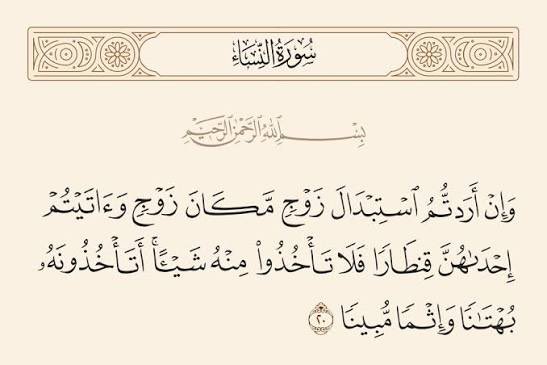 سُورَةُ النِّسَاءِ
بِسْمِ اللَّهِ الرَّحْمَٰنِ الرَّحِيمِ
وَإِنْ أَرَدتُّمُ ٱسْتِبْدَالَ زَوْجٍ مَّكَانَ زَوْجٍ وَءَاتَيْتُمْ
إِحْدَىٰهُنَّ قِنطَارًا فَلَا تَأْخُذُوا۟ مِنْهُ شَيْـًٔا ۚ أَتَأْخُذُونَهُۥ
بُهْتَـٰنًا وَإِثْمًا مُّبِينًا ٢٠